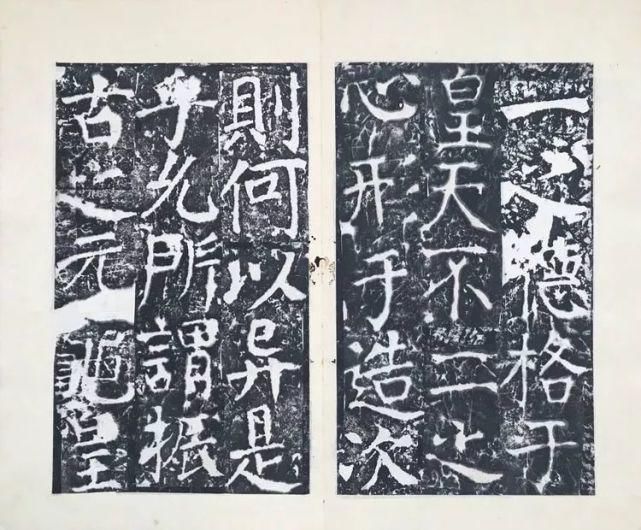 一之德格于
皇天不二之
心形于造次
則何以异是
乎允所謂振
古之元龜皇